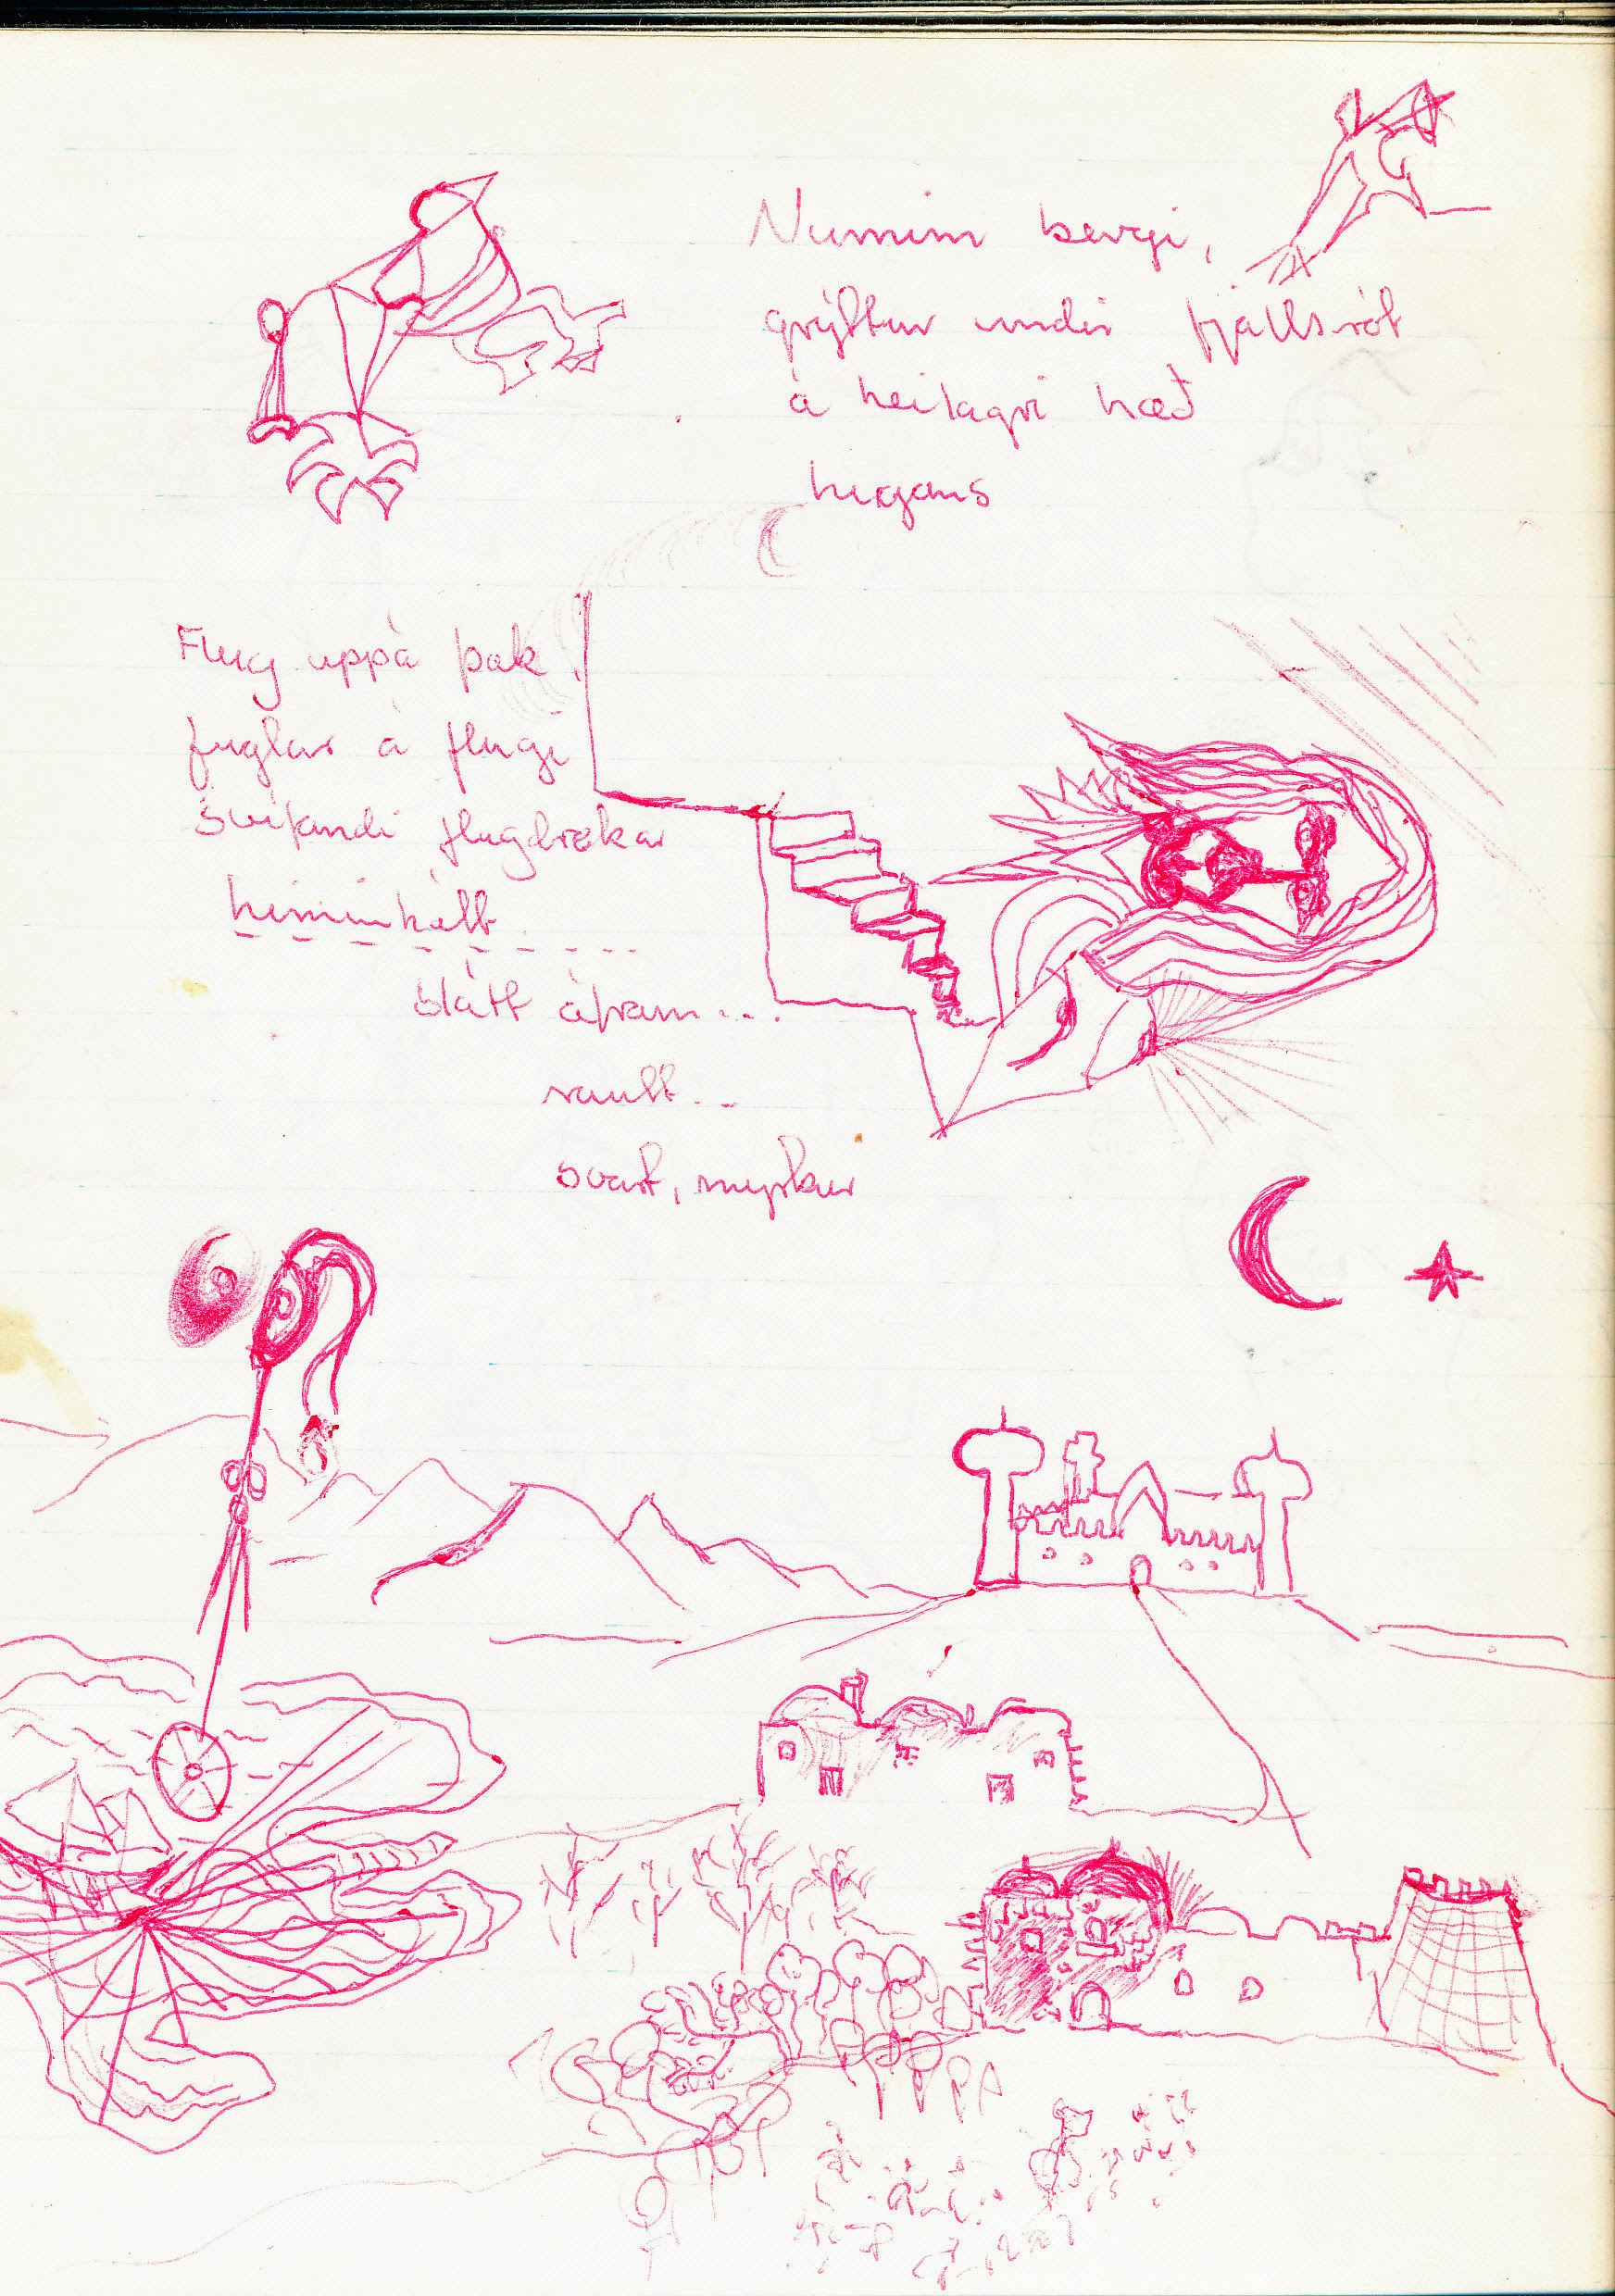 Numinn bergi,
grýttur undir fjallsrót
á heilagri hæð
hugans
Flug uppá þak,
fuglar á flugi
Svífandi flugdrekar
himinhátt
blátt áfram...
rautt...
svart, myrkur